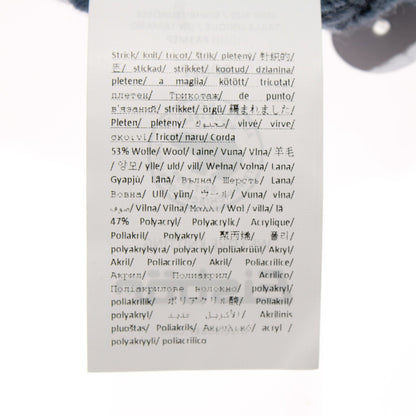 Strick/ knit/ tricot/ štrik/ pletený/ 針織的/
뜬/ stickad/ strikket/ kootud/ dzianina/
pletene/ a maglia/ kötött/ tricotat/
плетен/ Трикотаж/ de punto/
в'язаний/ strikket/ örgü/ 編まれました/
Pleten/ pleteny/ vlrvé/ virve/
Tricot/ naru/ Corda
53% Wolle/ Wool/ Laine/ Vuna/ Vlna/ 羊毛
/ 양모/ ylle/ uld/ vill/ Welna/ Volna/ Lana/
Gyapjú/ Lână/ Вълна/ Шерсть/ Lana/
Вовна/ Ull/ yün/ ウール/ Vuna/ vlna/
صوف/ Vilna/ Vilna/ Μαλλί/ Wol/ villa/ lã
47% Polyacryl/ Polyacrylic/ Acrylique/
Poliakril/ Polyakryl/ 聚丙烯/ 폴리/
polyakrylsyra/ polyacryl/ polüakrüül/ Akryl/
Akril/ Poliacril/ Poliacrilice/
Акрил/ Полиакрил/ Acrilico/
Поліакрилове волокно/ polyakryl/
poliakrilik/ ポリアクリル酸/ Poliakril/
polyakryl/ الأكريل/ Akrilinis
pluoštas/ Poliakrils/ Ακρυλικό/ acryl /
polyakryyli/ poliacrilico